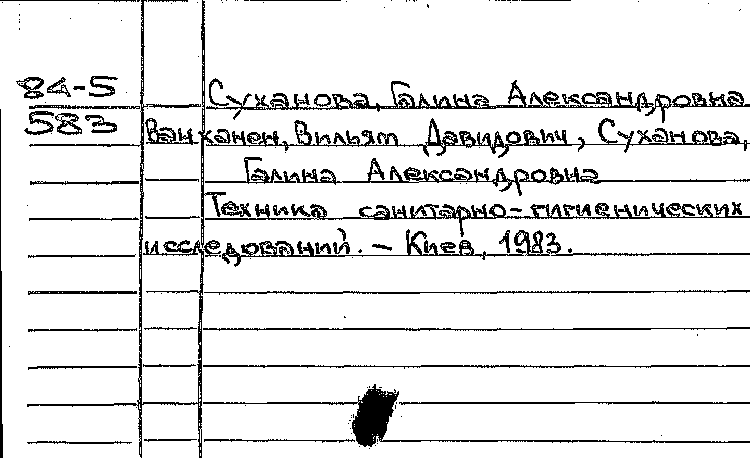 84-5 Суханова, Галина Александровна
583 Ванханен, Вильям Давидович, Суханова,
Галина Александровна
Техника санитарно-гигиенических
исследований. – Киев, 1983.